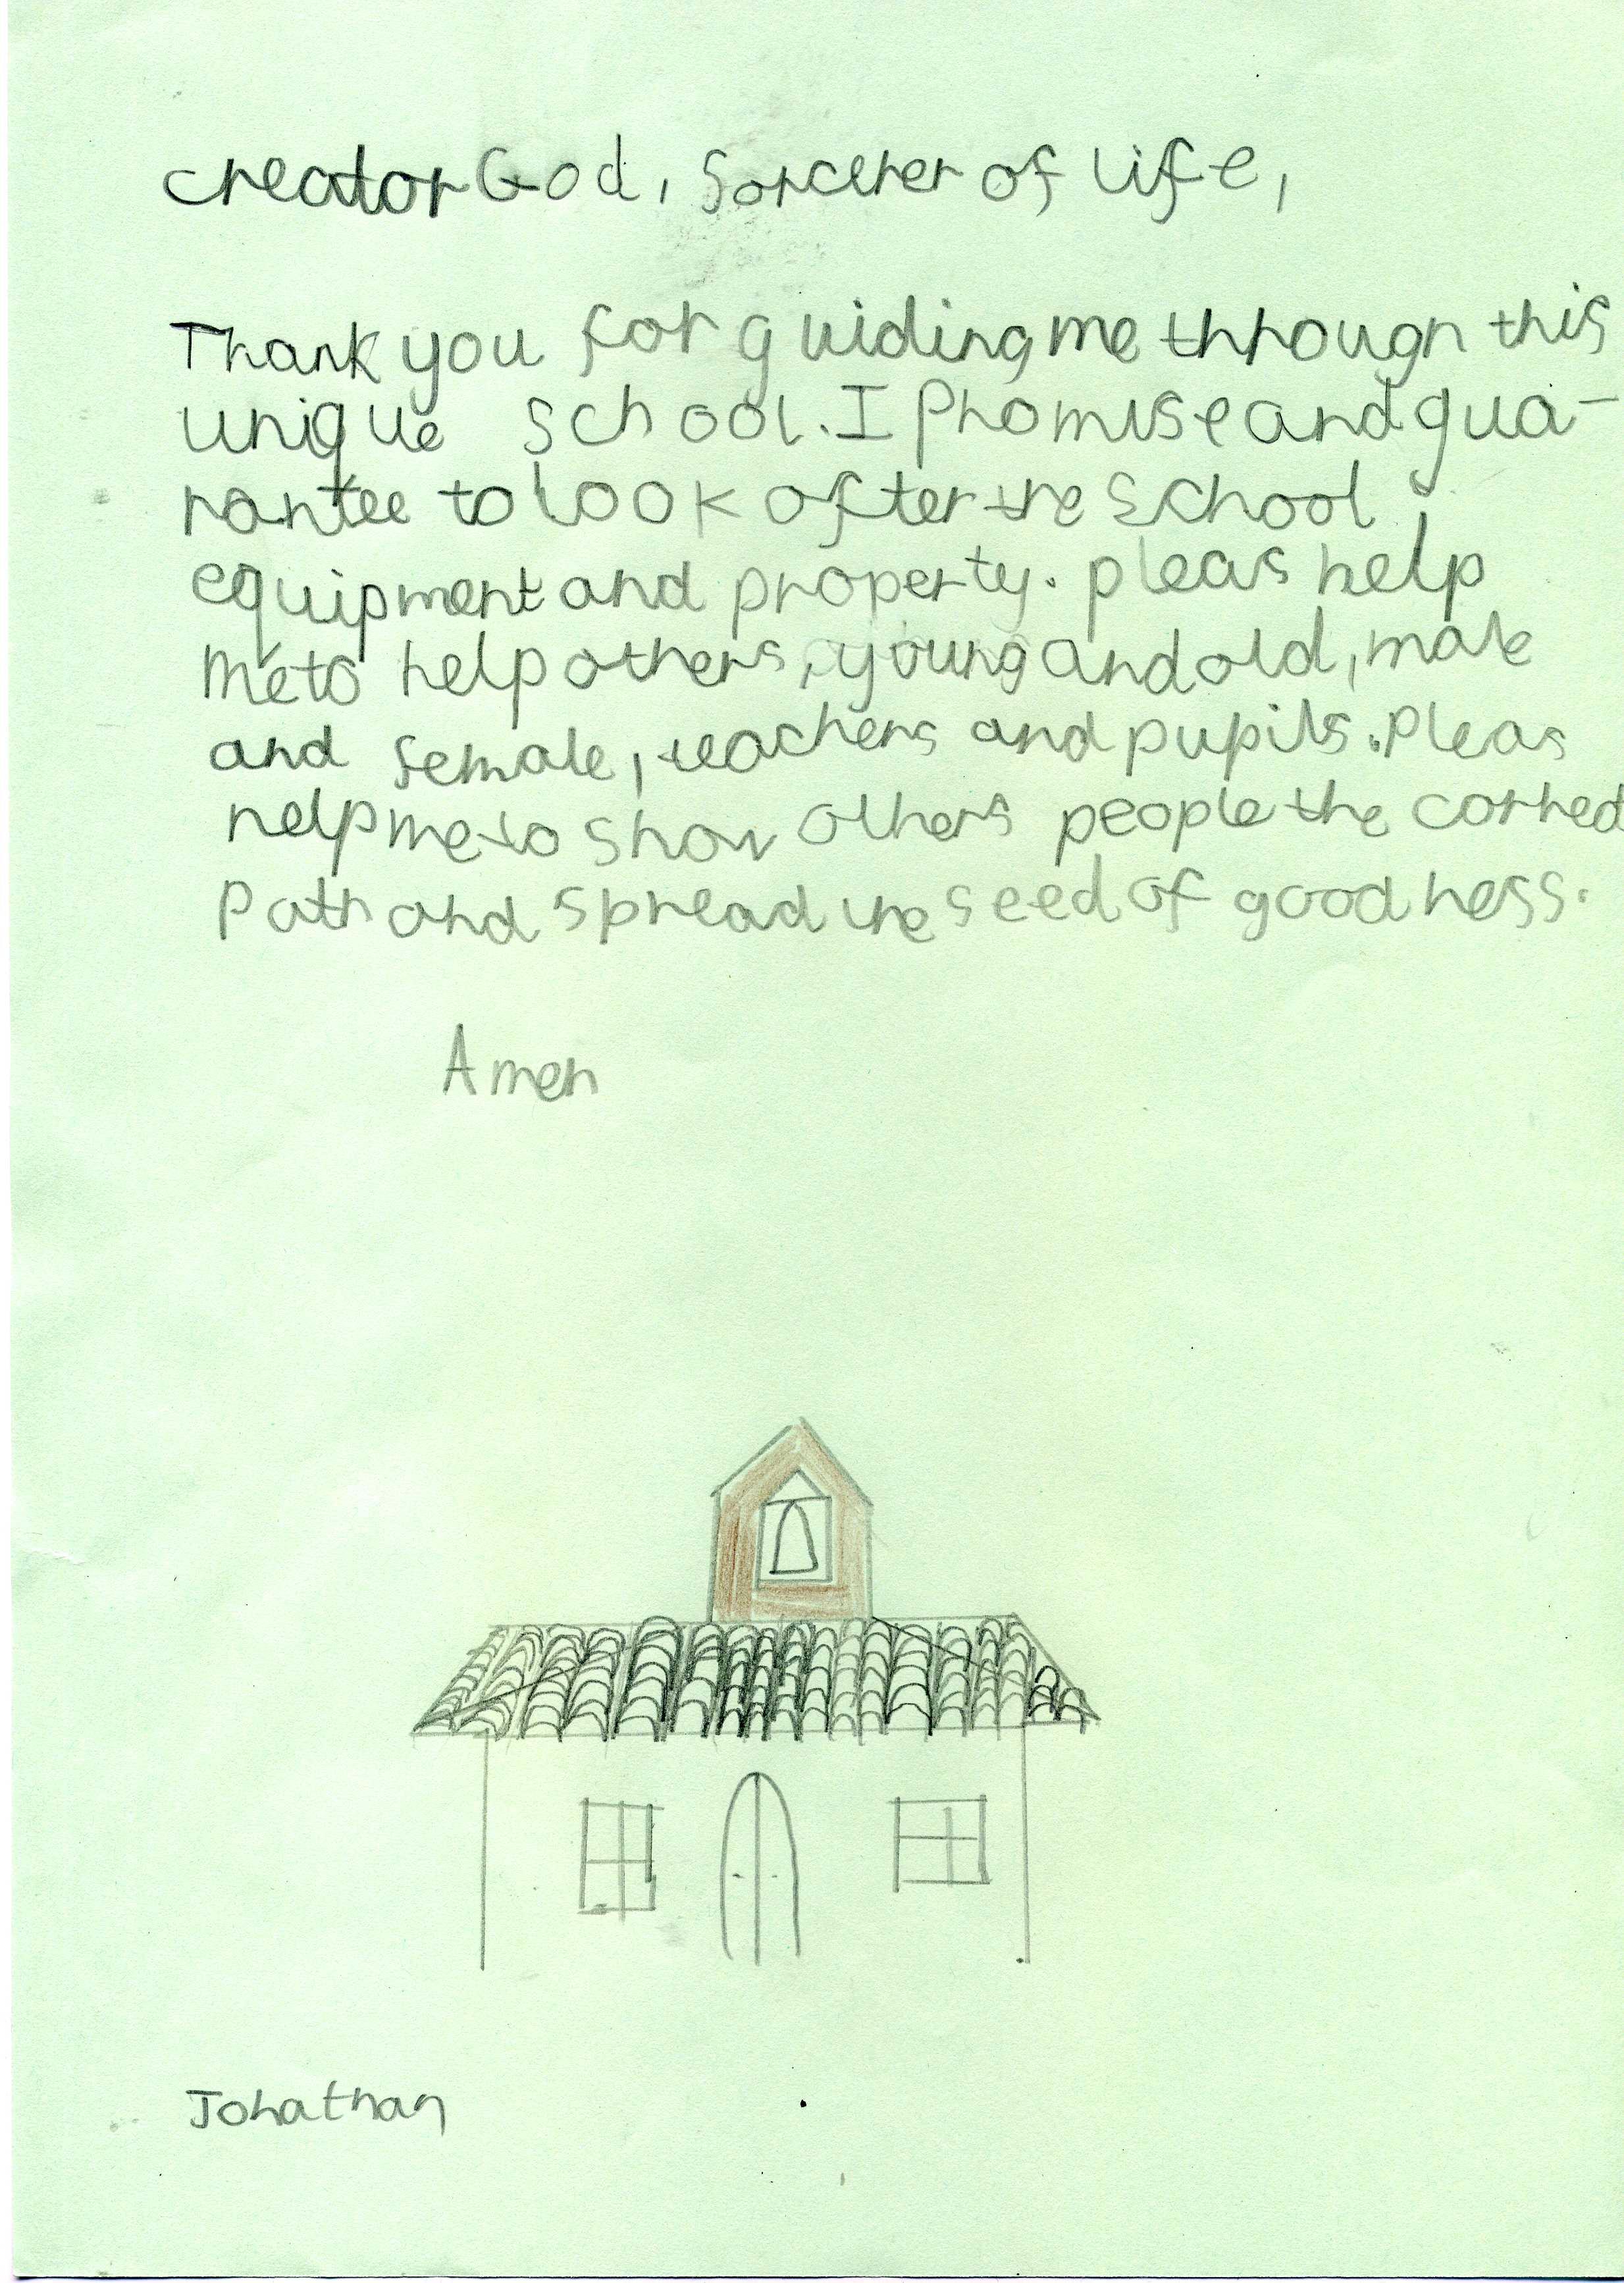 creator God, Sorcerer of life,
Thank you for guiding me through this
unique school. I Promise and gua-
rantee to look after the school
equipment and property. pleas help
me to help others, young and old, male
and female, teachers and pupils. Pleas
help me to show others people the corred
Path and spread the seed of goodness.
Amen
Johathan